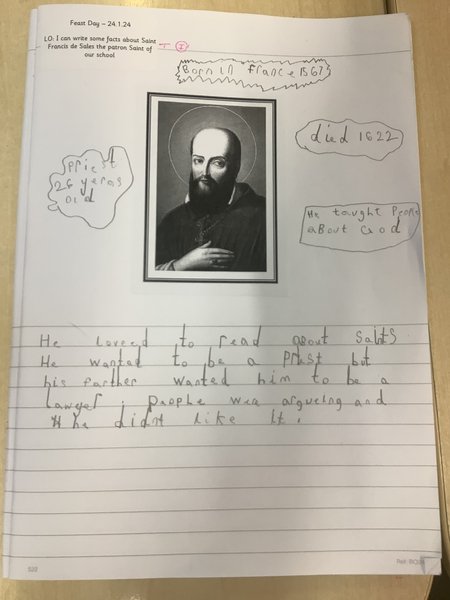 Feast Day – 24.1.24
LO: I can write some facts about Saint
Francis de Sales the patron Saint of
our school
T I
Born in france 1567
died 1622
Priest
26 yeras
old
He taught People
aBout God
He Loveed to read about Saints.
He wanted to be a Prist but
his farther wanted him to be a
Lawyer. people were argueing and
he didnt like it.
522